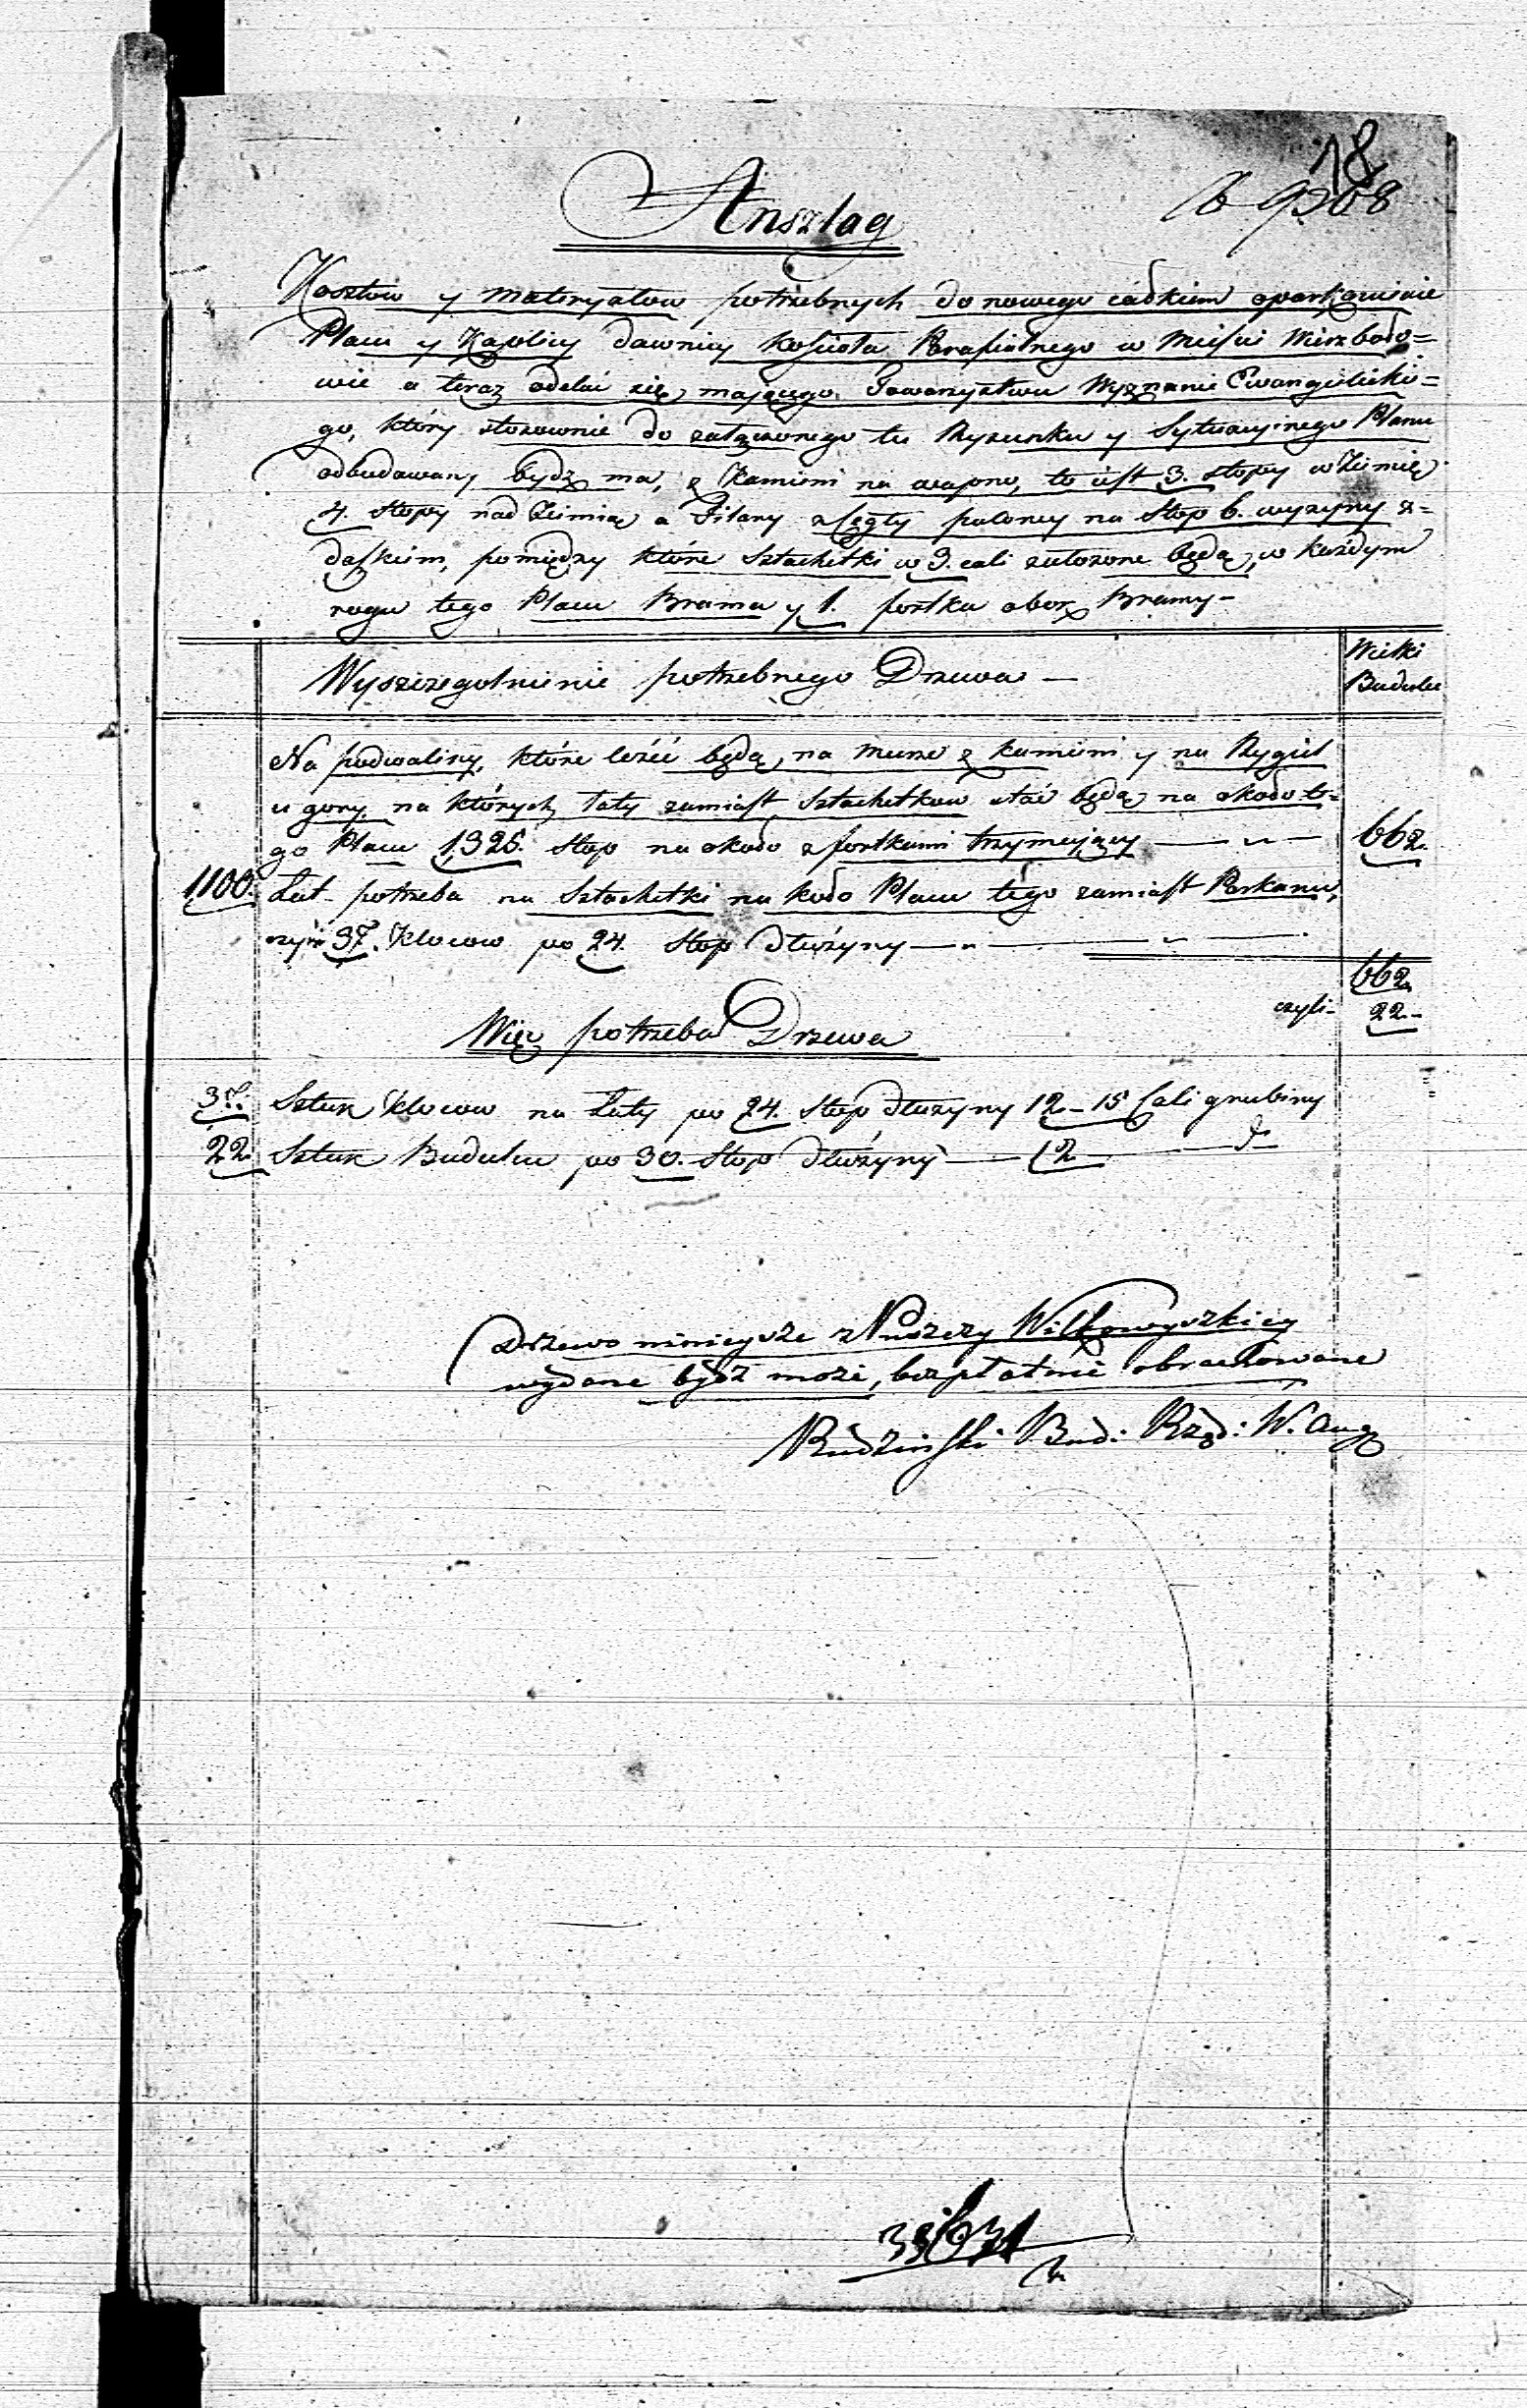 18
9268
Anszlag
Kosztow y materyałow potrzebnych do nowego całkiem oparkanienie
Placu y Kaplicy dawniey Kościoła Parafialnego w Mieście Wierzbolo=
wie a teraz odelać się maiącego Towarzystwu Wyznanie Ewangelicki=
go, który stosownie do załączonego tu Rysunku y Sytuacyinego Planu
odbudowany bydz ma, z Kamieni na wapno, to iest 3. stopy w Ziemię
4. stopy nad Ziemią a Filary z Cegły paloney na Stop 6. wyzyny z=
daszkiem, pomiędzy które Sztachetki w 3. cali założone będą, w każdym
rogu tego Placu Brama y 1. fortka oboz Bramy-
Wyszczegolnienie potrzebnego Drzewa —
Wielki
Budulec
Na podwaliny, które leżéć będą, na murze z kamieni y na Rygiel
u gory, na których łaty zamiast Sztachetkow stać będą na około te=
go Placu 1,325. stop na około z fortkami trzymaiący — 662.
1100. Łat potrzeba na Sztachetki na koło Placu tego zamiast Parkanu,
czyli 37. Klocow po 24. Stop dłużyny —
662
czyli - 22.-
Więc potrzeba Drzewa
37. Sztuk Klocow na Łaty po 24. Stop dłużyny 12 - 15 Cali grubiny
22. Sztuk Budulcu po 30. Stop dłużyny — 12 —
Drzewo ninieysze z Puszczy Wiłkowyszkiey
wydane bydź może, bezpłatnie obrachowane
Rudzinski Bud: Rząd: W. Aug